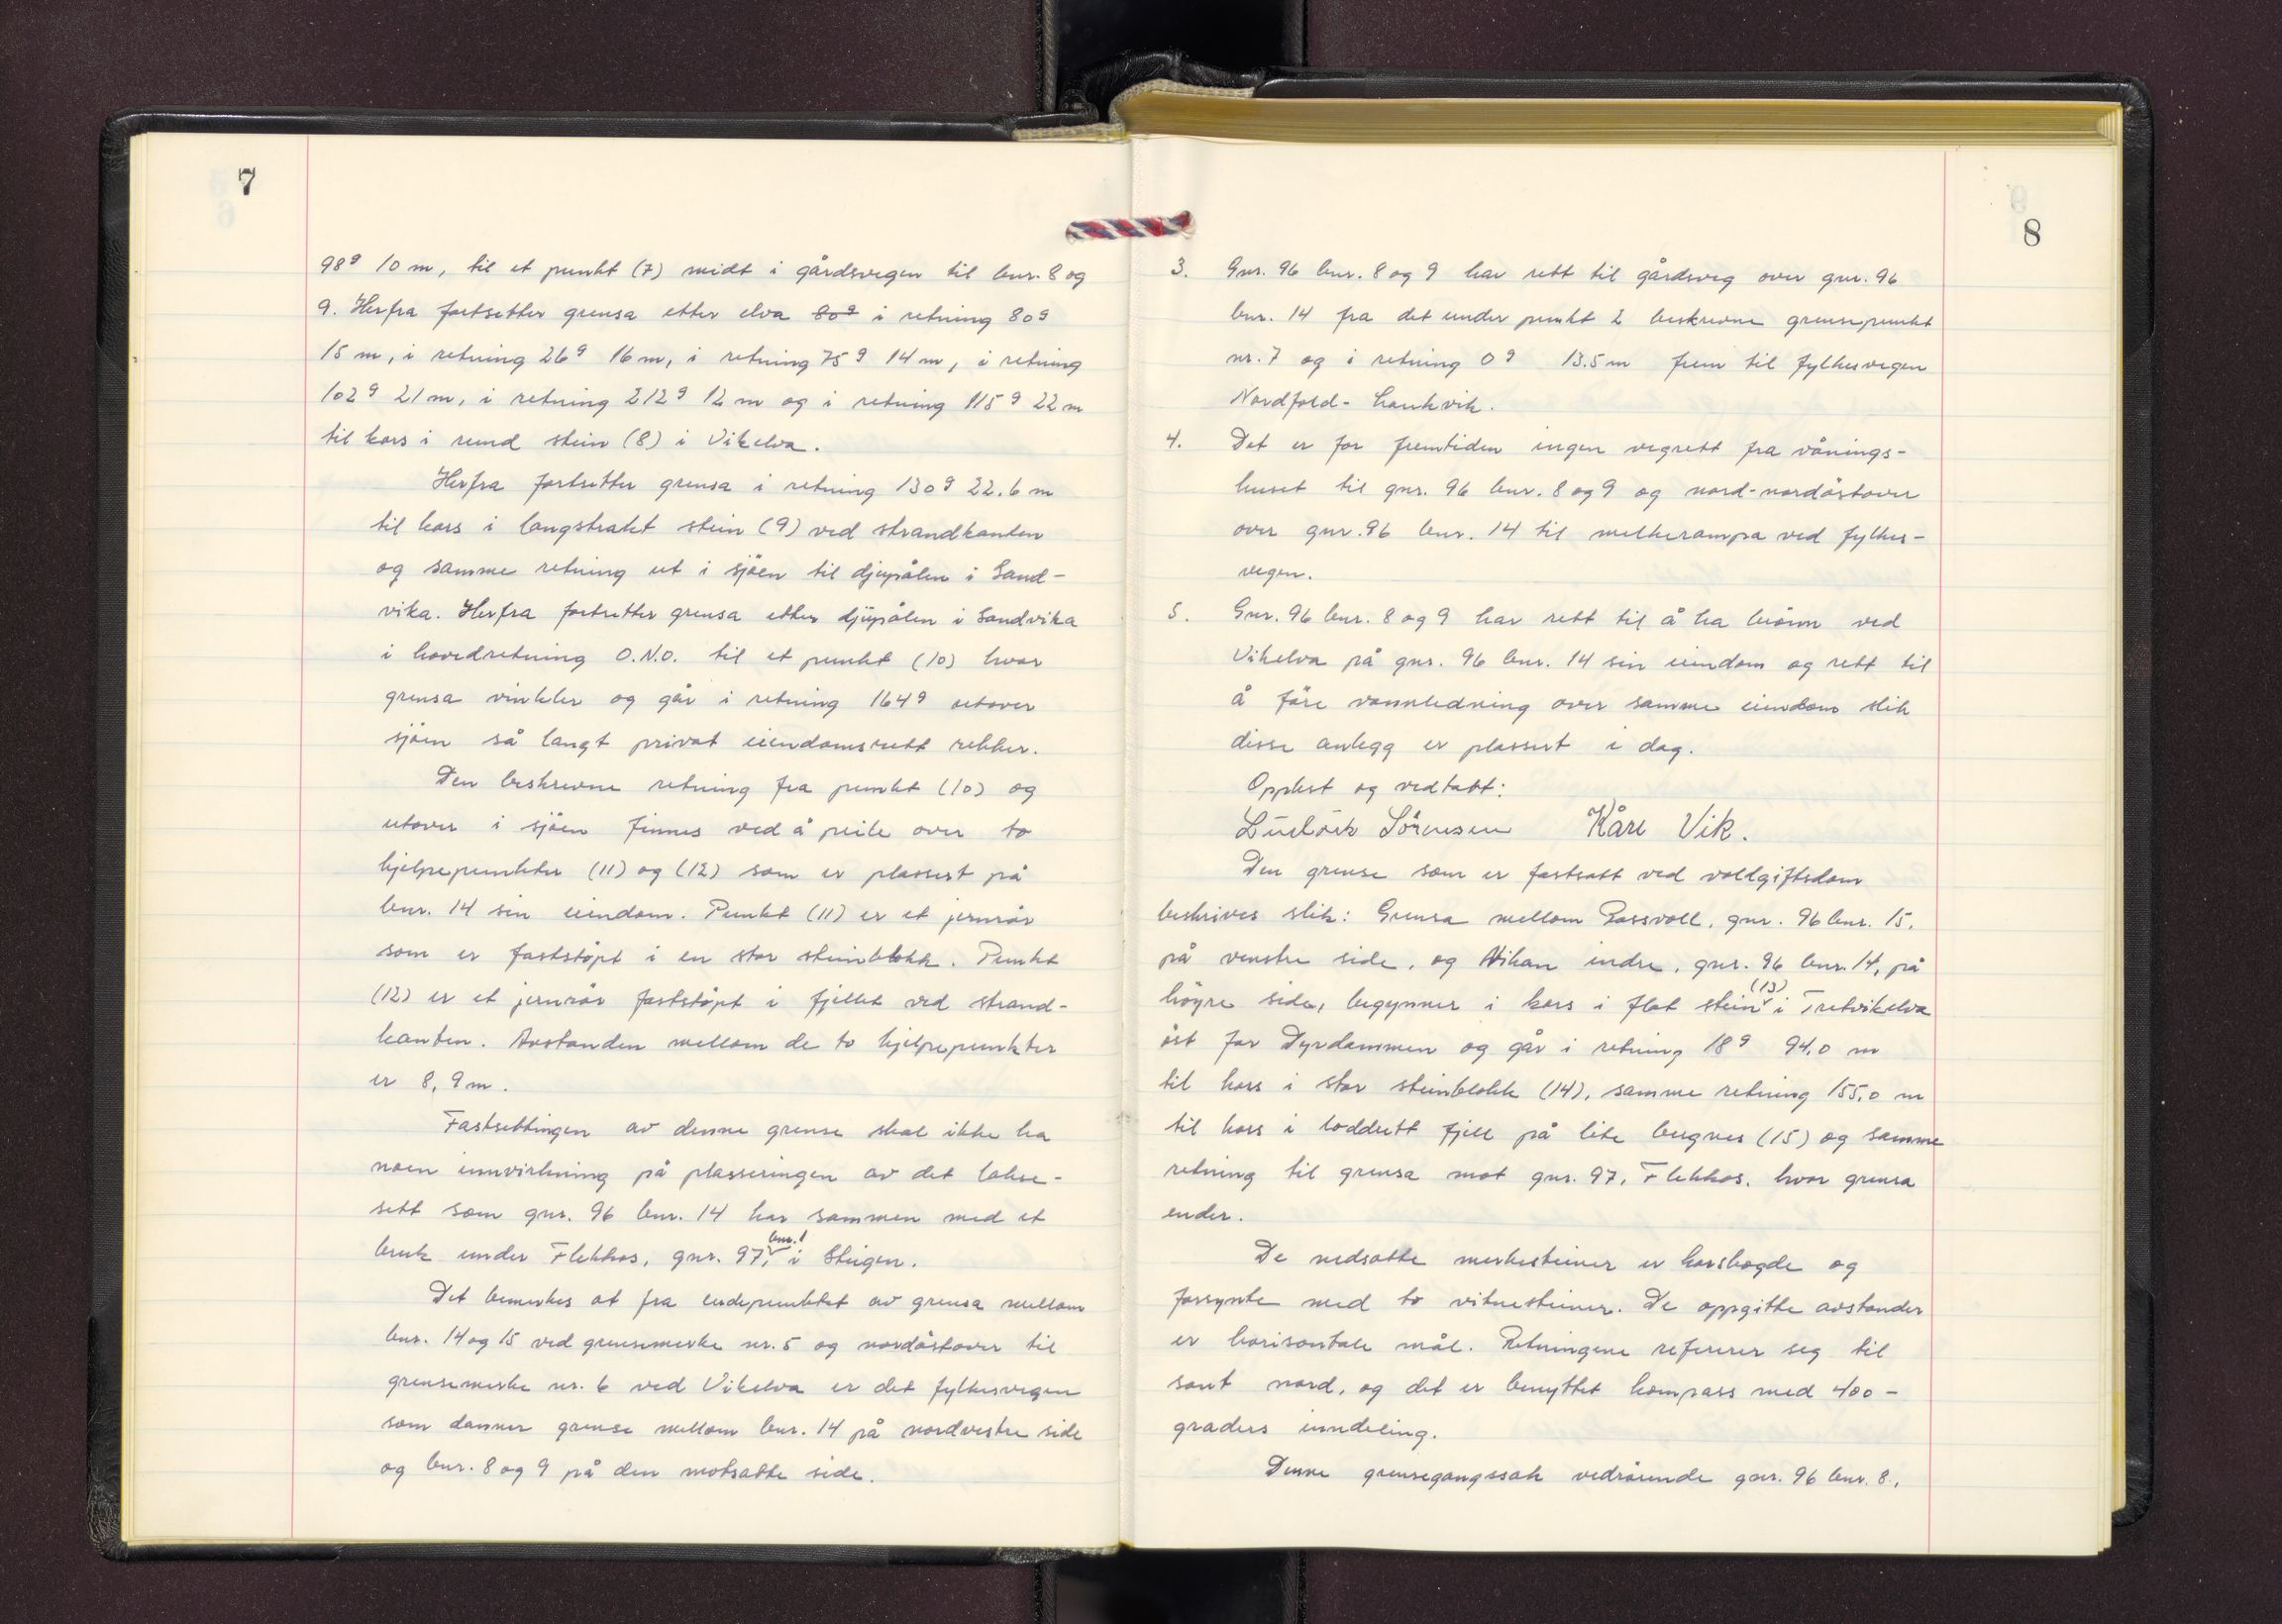 7
98ᵍ 10 m, til et punkt (7) midt i gårdsvegen til bnr. 8 og
9. Herfra fortsetter grensa etter elva 80ᵍ i retning 80ᵍ
15 m, i retning 26ᵍ 16 m, i retning 75ᵍ 14 m, i retning
102ᵍ 21 m, i retning 212ᵍ 12 m og i retning 115ᵍ 22 m
til kors i rund stein (8) i Vikelva.
Herfra fortsetter grensa i retning 130ᵍ 22.6 m
til kors i langstrakt stein (9) ved strandkanten
og samme retning ut i sjöen til djupålen i Sand-
vika. Herfra fortsetter grensa etter djupålen i Sandvika
i hovedretning O.N.O. til et punkt (10) hvor
grensa vinkler og går i retning 164ᵍ utover
sjöen så langt privat eiendomsrett rekker.
Den beskrevne retning fra punkt (10) og
utover i sjöen finnes ved å peile over to
hjelpepunkter (11) og (12) som er plassert på
bnr. 14 sin eiendom. Punkt (11) er et jernrör
som er faststöpt i en stor steinblokk. Punkt
(12) er et jernrör faststöpt i fjellet ved strand-
kanten. Avstanden mellom de to hjelpepunkter
er 8,9 m.
Fastsettingen av denne grense skal ikke ha
noen innvirkning på plasseringen av det lakse-
sett som gnr. 96 bnr. 14 har sammen med et
bruk under Flekkos, gnr. 97, bnr. 1 i Steigen.
Det bemerkes at fra endepunktet av grensa mellom
bnr. 14 og 15 ved grensemerke nr. 5 og nordöstover til
grensemerke nr. 6 ved Vikelva er det fylkesvegen
som danner grense mellom bnr. 14 på nordvestre side
og bnr. 8 og 9 på den motsatte side.
8
3. Gnr. 96 bnr. 8 og 9 har rett til gårdsveg over gnr. 96
bnr. 14 fra det under punkt 2 beskrevne grensepunkt
nr. 7 og i retning 0ᵍ 13.5 m frem til fylkesvegen
Nordfold-
4. Det er for fremtiden ingen vegrett fra vånings-
huset til gnr. 96 bnr. 8 og 9 og nord-nordöstover
over gnr. 96 bnr. 14 til melkerampa ved fylkes-
vegen.
5. Gnr. 96 bnr. 8 og 9 har rett til å ha brönn ved
Vikelva på gnr. 96 bnr. 14 sin eiendom og rett til
å före vannledning over samme eiendom slik
disse anlegg er plassert i dag.
Opplest og vedtatt:
Sörensen Kåre Vik.
Den grense som er fastsatt ved voldgiftsdom
beskrives slik: Grensa mellom Rossvoll, gnr. 96 bnr. 15,
på venstre side, og Vikan indre, gnr. 96 bnr. 14, på
höyre side, begynner i kors i flat stein (13) i Tretvikelva
öst for Dyrdammen og går i retning 18ᵍ 94,0 m
til kors i stor steinblokk (14), samme retning 155,0 m
til kors i loddrett fjell på lite bergnes (15) og samme
retning til grensa mot gnr. 97, Flekkos, hvor grensa
ender.
De nedsatte merkesteiner er korshogde og
forsynte med to vitnesteiner. De oppgitte avstander
er horisontale mål. Retningene refererer seg til
sant nord, og det er benyttet kompass med 400-
graders inndeling.
Denne grensegangssak vedrörende gnr. 96 bnr. 8,